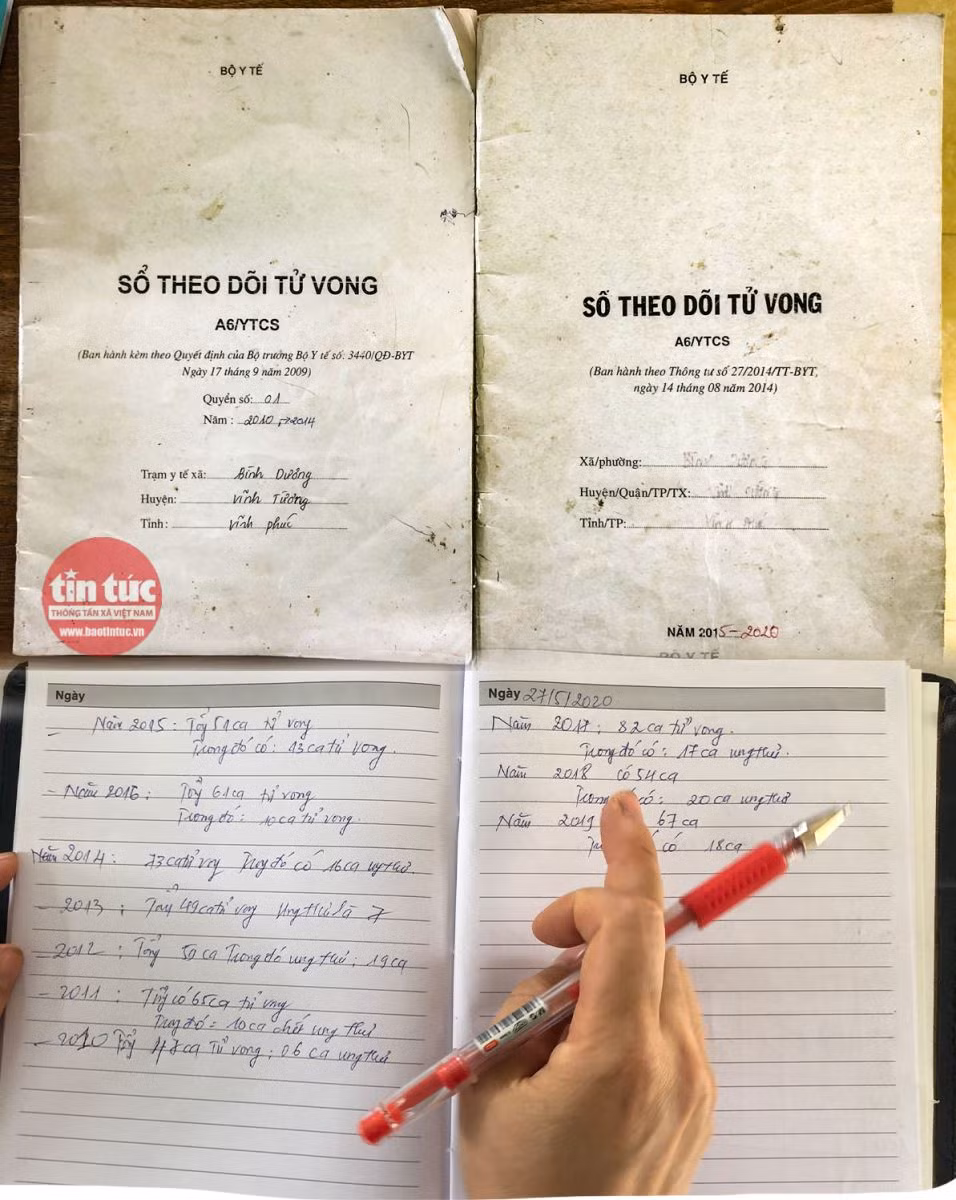 BỘ Y TẾ
SỔ THEO DÕI TỬ VONG
A6/YTCS
(Ban hành kèm theo Quyết định của Bộ trưởng Bộ Y tế số: 3440/QĐ-BYT
Ngày 17 tháng 9 năm 2009)
Quyển số: 01
Năm : 2010 → 2014
Trạm y tế xã: Bình Dương
Huyện: Vĩnh Tường
Tỉnh: Vĩnh phúc
tin tức
THÔNG TẤN XÃ VIỆT NAM
www.baotintuc.vn
BỘ Y TẾ
SỔ THEO DÕI TỬ VONG
A6/YTCS
(Ban hành theo Thông tư số 27/2014/TT-BYT,
ngày 14 tháng 08 năm 2014)
Xã/phường:
Huyện/Quận/TP/TX:
Tỉnh/TP:
NĂM 2015-2020
BỘ Y TẾ
Ngày
Năm 2015: Tổng 51 ca tử vong
Trong đó có: 13 ca tử vong.
- Năm 2016: Tổng 61 ca tử vong
Trong đó: 10 ca tử vong.
Năm 2014: 73 ca tử vong Trong đó có 16 ca ung thư.
- 2013: 49 ca tử vong Ung thư là 7
- 2012: Tổng 50 ca Trong đó ung thư: 19 ca
- 2011: Tổng có 65 ca tử vong
Trong đó: 10 ca chết ung thư
- 2010 Tổng 47 ca Tử vong: 06 ca ung thư
Ngày 27/5/2020
Năm 2017: 82 ca tử vong.
Trong đó có: 17 ca ung thư.
Năm 2018 có 54 ca
Trong có: 20 ca ung thư
Năm 2019 67 ca
có 18 ca